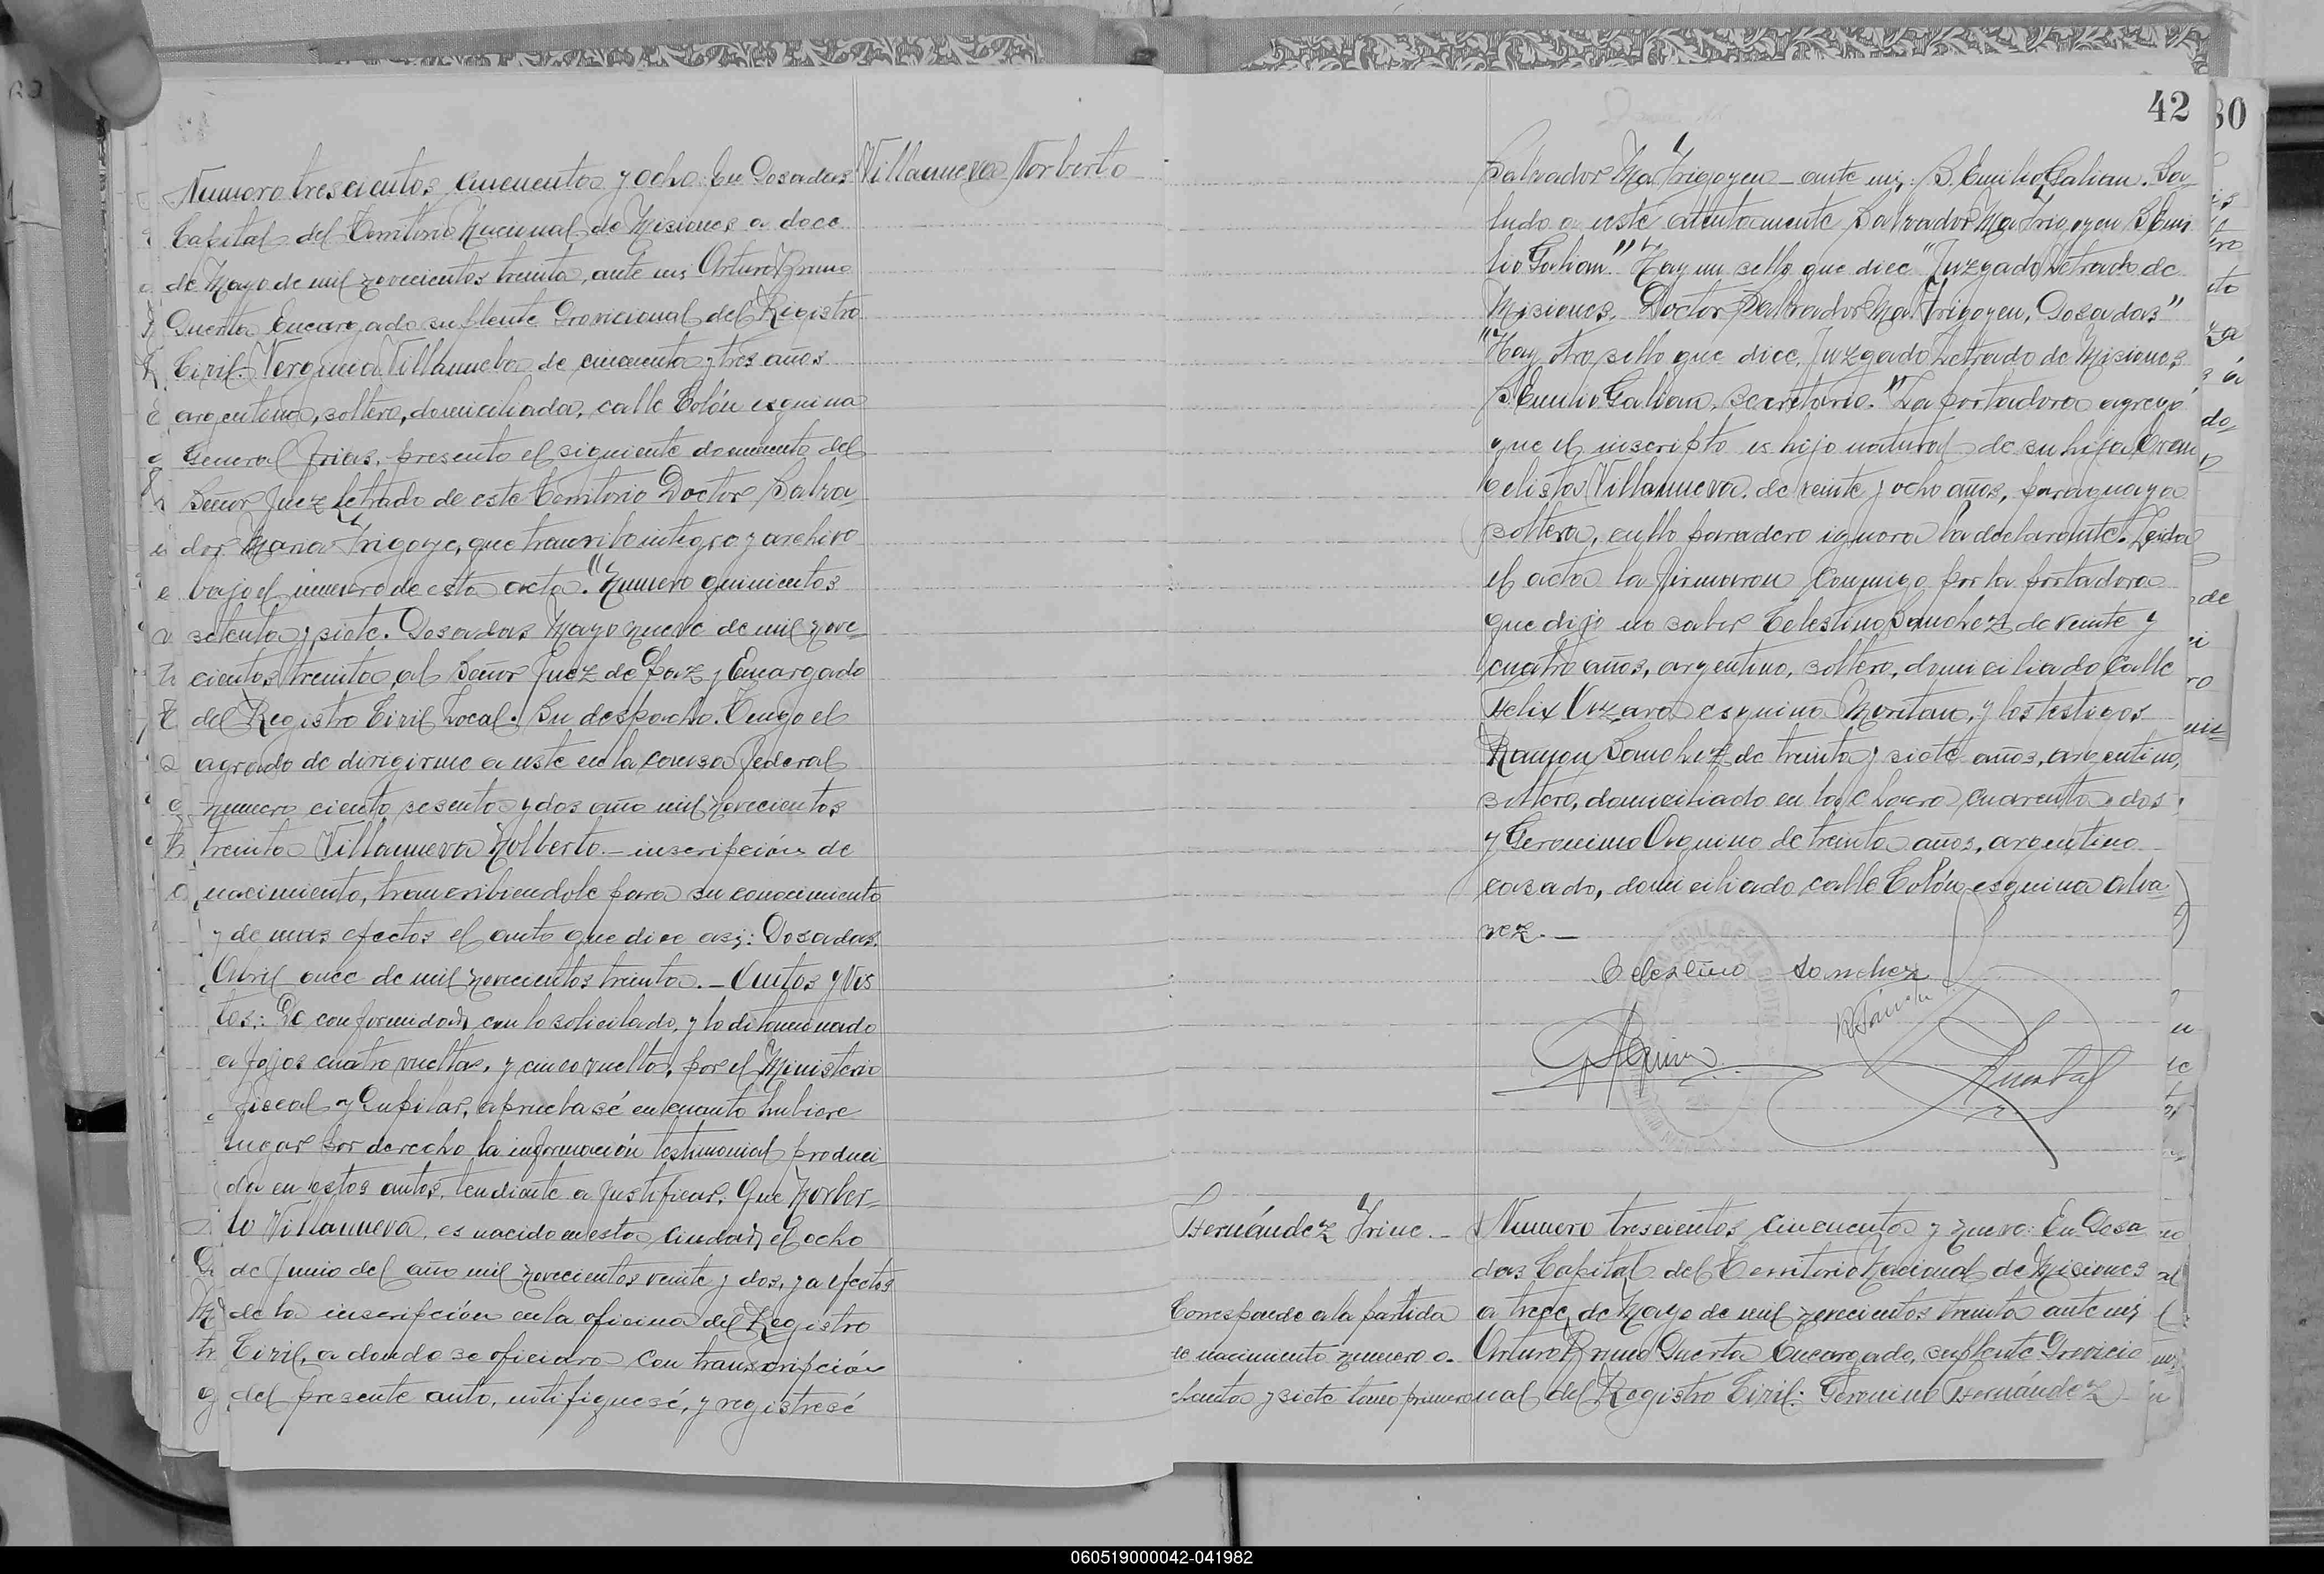 Villanueva Norberto
Numero trescientos cincuenta y ocho. En Posadas
Capital del Territorio Nacional de Misiones a doce
de Mayo de mil novecientos treinta, ante mi Arturo Bruno
Puerta Encargado suplente Provicional del Registro
Civil. Verginia Villanueba de cincuenta y tres años
argentina, soltera, domiciliada, calle Colón esquina
General Frias, presento el siguiente documento del
Señor Juez Letrado de este Territorio Doctor Salva-
dor Maria Irigoye, que transcribo integro y archivo
bajo el numero de esta acta. "Numero quinientos
setenta y siete. Posadas Mayo nueve de mil nove-
cientos treinta, al Señor Juez de Paz y Encargado
del Registro Civil Local. Su despacho. Tengo el
agrado de dirigirme a usté en la causa federal
numero ciento sesenta y dos año mil novecientos
treinta Villanueva Nolberto.- inscripción de
nacimiento, transcribiendole para su conocimiento
y de mas efectos el auto que dice asi: Posadas.
Abril once de mil novecientos treinta.- Autos y Vis
tos: De conformidad, con lo solicitado, y lo ditaminado
a fojas cuatro vueltas, y cinco vuelta, por el Ministerio
fiscal y Pupilar, apruebasé en cuanto hubiere
lugar por derecho la información testimonial produci
da en estos autos, tendiente a justificar, Que Norber-
to Villanueva, es nacido en esta ciudad, el ocho
de Junio del año mil novecientos veinte y dos, y a efectos
de la inscripción en la oficina del Registro
Civil, a donde se oficiara con transcripción
del presente auto, notifiquesé, y registresé
42
30
Salvador Ma Irigoyen - ante mi,: B. Emilio Galian. Sa-
ludo a usté atentamente Salvador Ma Irigoyen B Emi
lio Galian." Hay un sello que dice "Juzgado Letrado de
Misiones, Doctor Salvador Ma. Irigoyen, Posadas"
"Hay otro sello que dice, Juzgado Letrado de Misiones,
B. Emilio Galian, secretario." La portadora agregó
que el inscripto es hijo natural de su hija Evan
telista Villanueva, de veinte y ocho años, paraguaya
soltera, cullo parradero ignora la declarante. Leida
el acta la firmaron conmigo por la portadora
que dijo no saber Celestino Sanchez de veinte y
cuatro años, argentino, soltero, domiciliado calle
Felix Uzara esquina Moritan, y los testigos
Ramon Sanchez de treinta y siete años, argentino,
soltero, domiciliado en la chacra cuarenta y dos;
y Geronimo Aquino de treinta años, argentino
casado, domiciliado calle Colón esquina alva-
rez.-
Celestino Sanchez
Hernández Trinc.-
Numero trescientos cincuenta y nueve: En Posa
das Capital del Territorio Nacional de Misiones
a trece, de Mayo de mil novecientos treinta ante mi,
Arturo Bruno Puerta Encargado, suplente Provicio
nal del Registro Civil: Geronino Hernández
Corresponde a la partida
de nacimiento numero o-
chenta y siete tomo primero
060519000042-041982